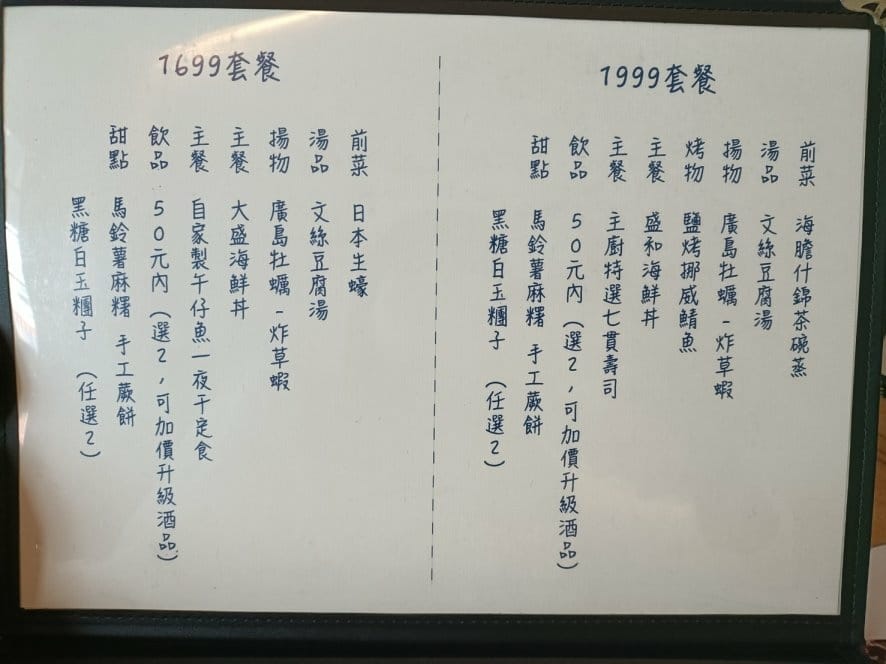 1699套餐
前菜 日本生蠔
湯品 文絲豆腐湯
揚物 廣島牡蠣-炸草蝦
主餐 大盛海鮮丼
主餐 自家製午仔魚一夜干定食
飲品 50元內(選2,可加價升級酒品)
甜點 馬鈴薯麻糬 手工蕨餅
黑糖白玉糰子 (任選2)
1999套餐
前菜 海膽什錦茶碗蒸
湯品 文絲豆腐湯
揚物 廣島牡蠣-炸草蝦
烤物 鹽烤挪威鯖魚
主餐 盛和海鮮丼
主餐 主廚特選七貫壽司
飲品 50元內(選2,可加價升級酒品)
甜點 馬鈴薯麻糬 手工蕨餅
黑糖白玉糰子 (任選2)